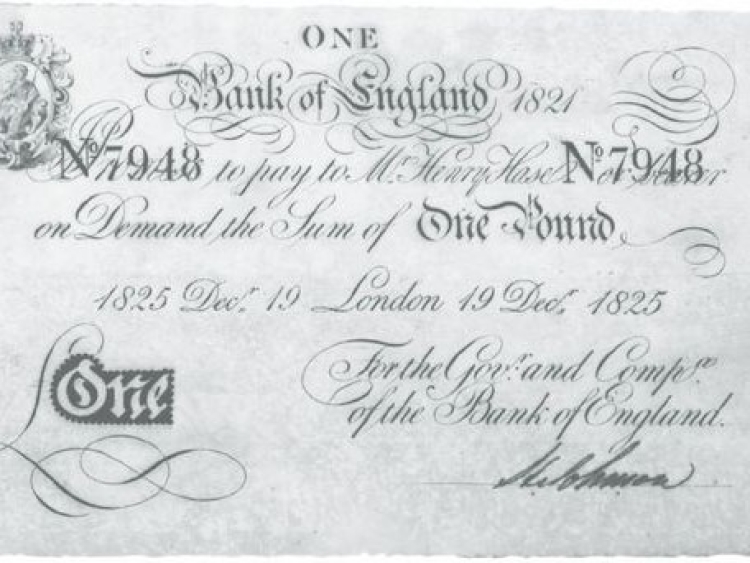 ONE
Bank of England 1821
Nº 7948 to pay to Mr. Henry Hase Nº 7948 or
on Demand the Sum of One Pound
1825 Decr. 19 London 19 Decr. 1825
For the Govr. and Compa.
of the Bank of England.
£One